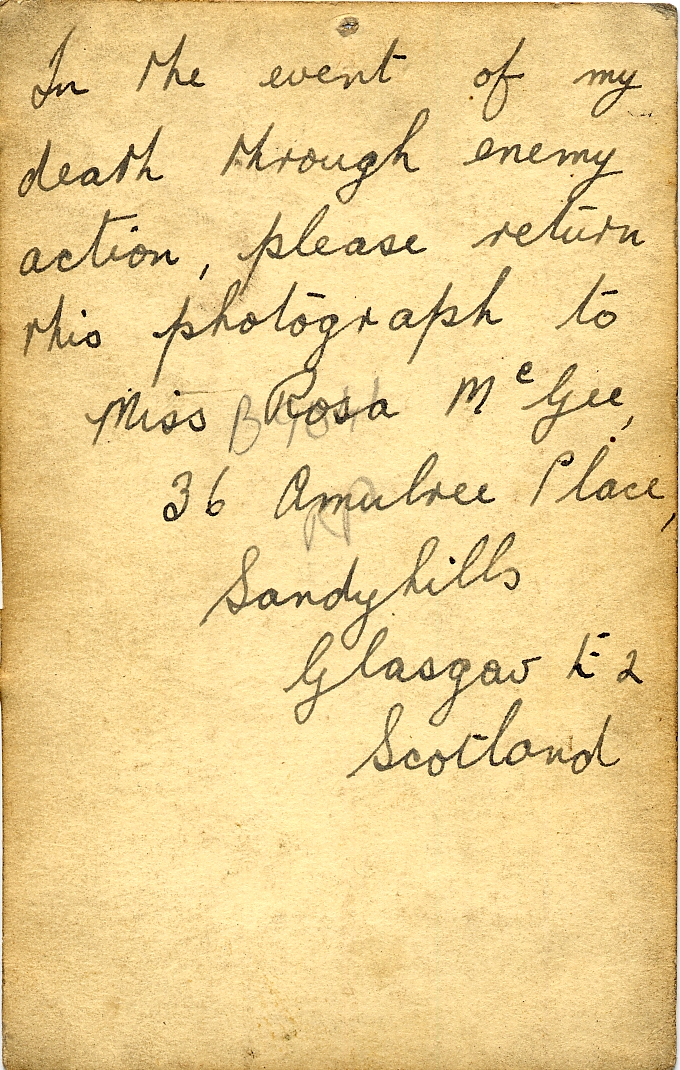 In the event of my
death through enemy
action, please return
this photograph to
Miss Rosa McGee,
36 Amulree Place,
Sandyhills
Glasgow E2
Scotland
RP